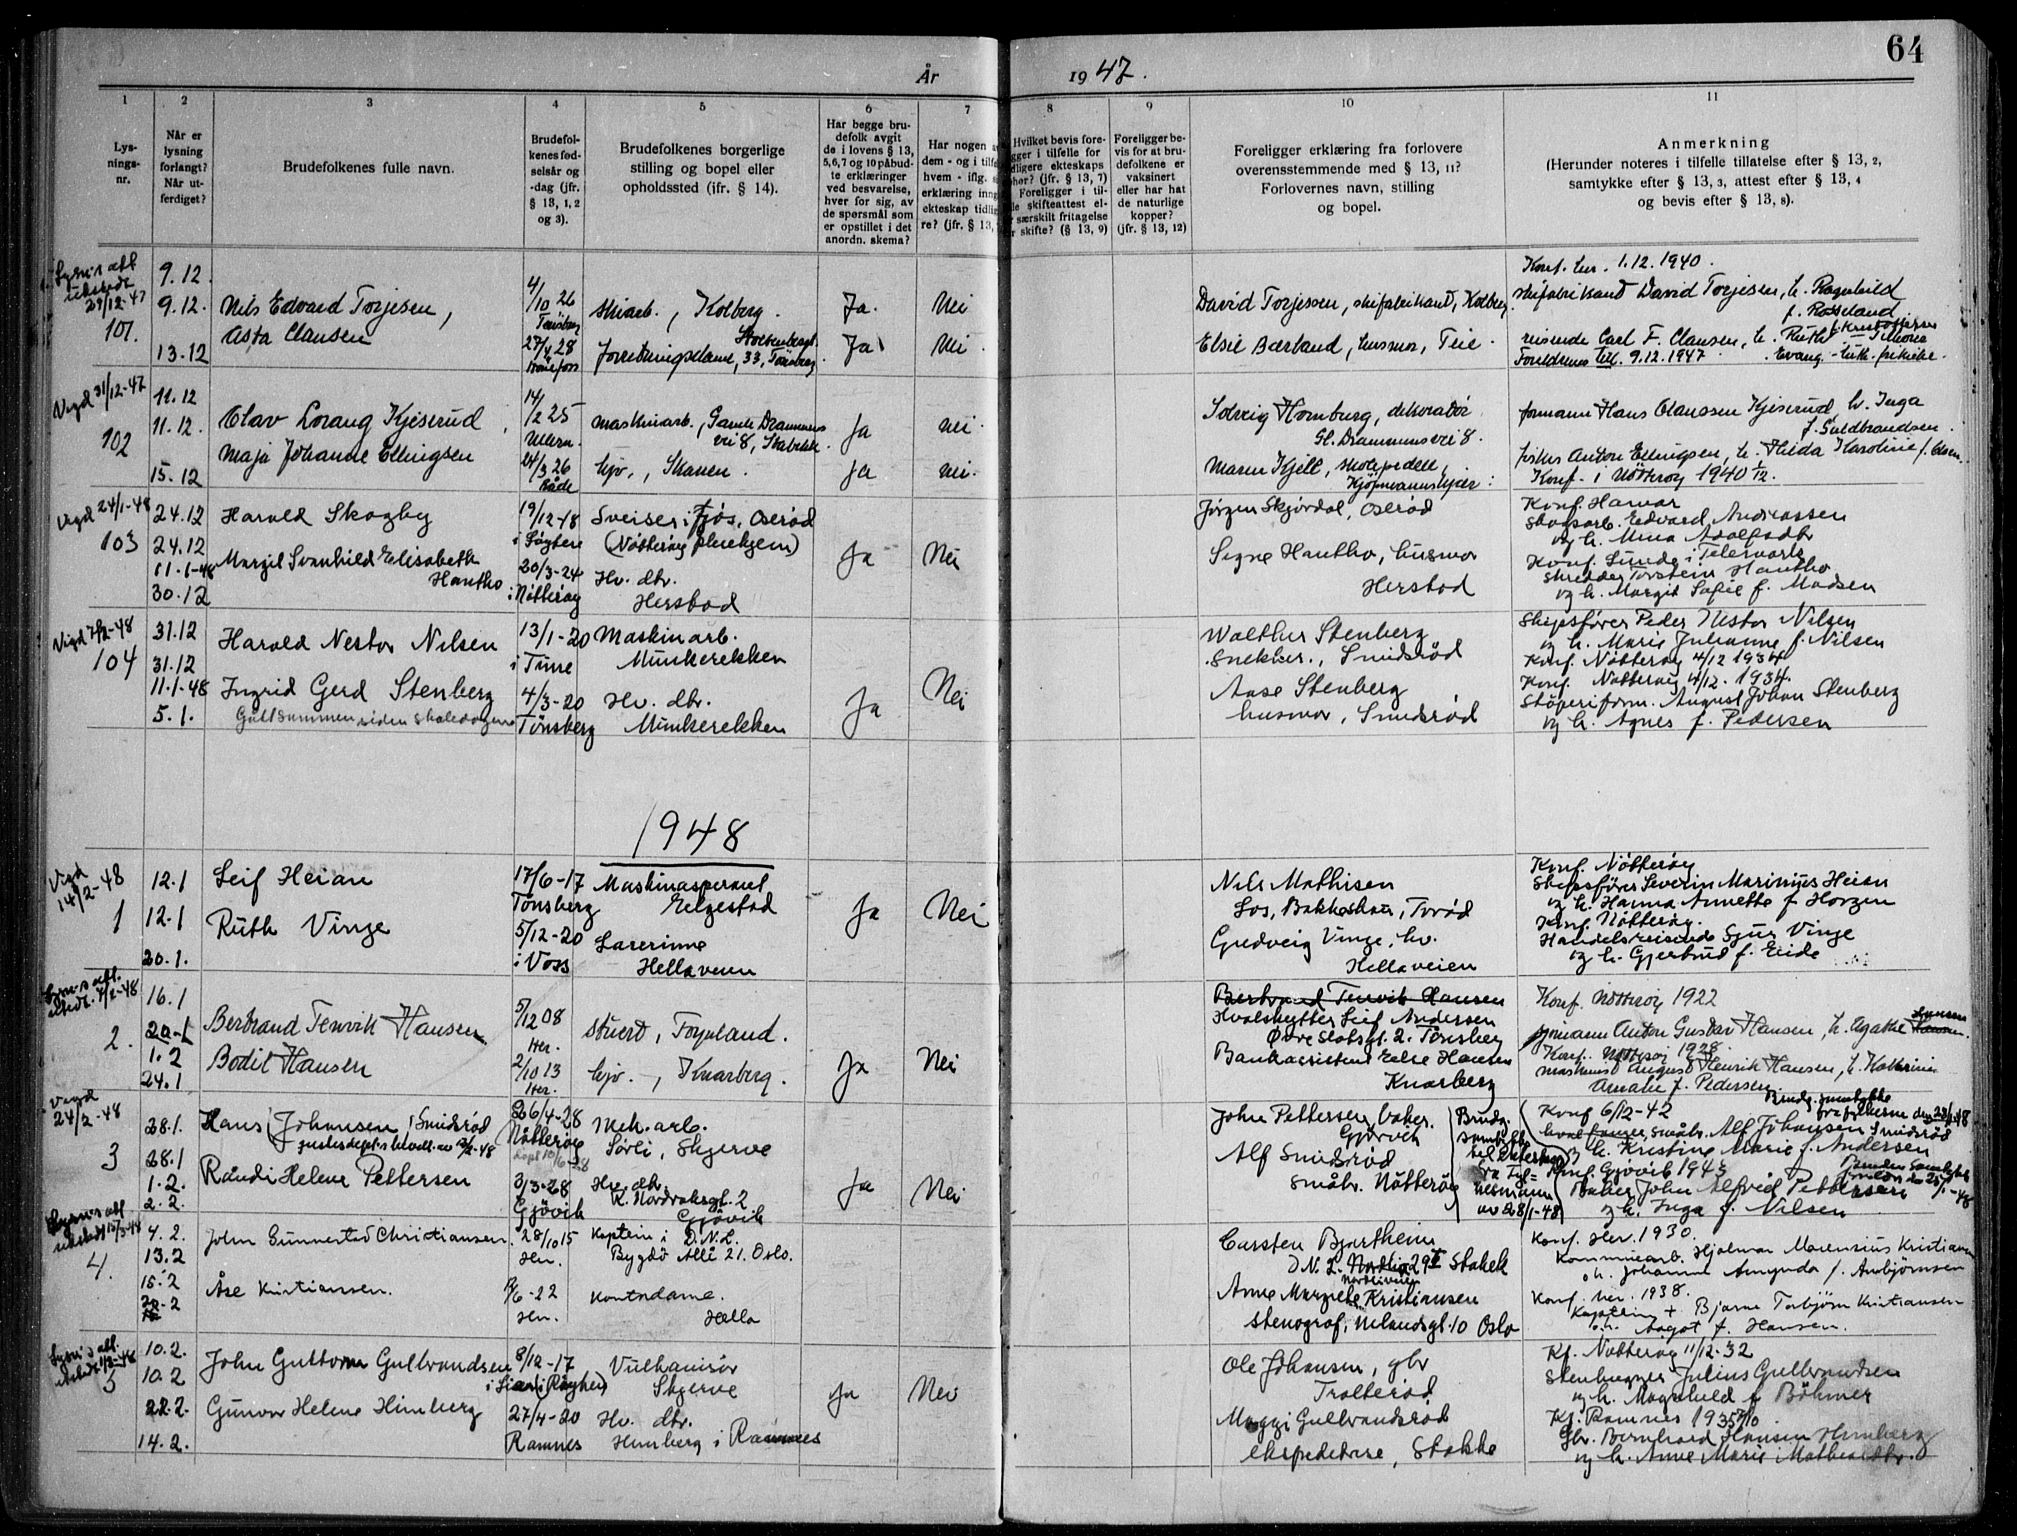 64
År 1947.
1 2 3 4 5 6 7 8 9 10 11
Lys-
nings-
nr.
Når er
lysning
forlangt?
Når ut-
ferdiget?
Brudefolkenes fulle navn.
Brudefol-
kenes fød-
selsår og
-dag (jfr.
§ 13, 1, 2
og 3).
Brudefolkenes borgerlige
stilling og bopel eller
opholdssted (ifr. § 14).
Har begge bru-
defolk avgit
de i lovens § 13,
5, 6, 7 og 10 påbud-
te erklæringer
ved besvarelse,
hver for sig, av
de spørsmål som
er opstillet i det
anordn. skema?
Har nogen a
dem - og i tilfe
hvem - iflg.
erklæring inng
ekteskap tidlig
re? (jfr. § 13,
Hvilket bevis fore-
gger i tilfelle for
dligere ekteskaps
phør? (jfr. § 13, 7)
Foreligger i til-
lle skifteattest el-
r særskilt fritagelse
r skifte? (§ 13, 9)
Foreligger be-
vis for at bru-
defolkene er
vaksinert
eller har hat
de naturlige
kopper?
(jfr. § 13, 12)
Foreligger erklæring fra forlovere
overensstemmende med § 13, 11?
Forlovernes navn, stilling
og bopel.
Anmerkning
(Herunder noteres i tilfelle tillatelse efter § 13, 2,
samtykke efter § 13, 3, attest efter § 13, 4
og bevis efter § 13, 8).
Lysn.s att
utstedt
29/12-47
101.
9.12
9.12.
13.12
Nils Edvard Torjesen,
Asta Clausen
4/
10 26
Tønsberg
27/4 28
skiarb., Kolberg.
Stoltenbergs
forretningsdame, 33, Tønsberg
Ja. Nei
Ja Nei.
David Torjessen, skifabrikant, Kolberg.
Elsie Bærland, husmor, Teie.
Konf. her. 1.12.1940.
skifabrikant David Torjesen, h. Ragnhild
f. Rosseland
reisende Carl F. Clausen, h. Ruth
Foreldrenes till. 9.12.1947. Evang.-luth. frikirke.
Vigd 31/12-47
102
11.12
11.12.
15.12
Olav Lorang Kjiserud,
Maja Johanne Ellingsen
14/
2 25
Ullern.
24/3 26
Råde
maskinarb., Gamle Drammens
vei 8, Stabekk.
hjv., Skauen.
Ja nei.
Ja nei.
Solveig Homburg, dekoratør
Gl. Drammensvei 8.
Maren Kjell, skolepedell,
Kjøpmannskjær.
formann Hans Olaussen Kjiserud, h. Inga
f. Guldbrandsen.
fisker Anton Ellingsen, h. Hilda Karoline f. Olsen.
Konf. i Nøtterøy 1940 1/12.
Vigd 24/1-48
103
24.12
24.12
11-1-48
30.12
Harald Skogby
Margit Svanhild Elisabeth
Hantho
19/12-18
20/3-24
i Nøtterøy
Sveiser i Fjøs, Oserød
(Nøtterøy pleiehjem)
Hv. dtr.
Herstad
Ja Nei
Jørgen Skjørdal, Oserød
Signe Hantho, husmor
Herstad
Konf. Harvar
Skogsarb. Edvard Andreassen
og h. Mina Adolfsdtr
Konf. Lunde i Telemark
Skredder Torstein Hantho
og h. Margit Sofie f. Madsen
Vigd 7/2-48
104
31.12
31.12
11.1-48
5.1.
Harald Nestor Nilsen
Ingrid Gerd Stenberg
Gått sammen siden skoledagene
13/1-20
i Tune
4/3-20
Tønsberg
Maskinarb.
Munkerekken
Hv. dtr.
Munkerekken
Ja Nei
Walther Stenberg
Snekker., Smidsrød
Aase Stenberg
husmor, Smidsrød
Skipsfører Peder Nestor Nilsen
og h. Marie Julianne f. Nilsen
Konf. Nøtterøy 4/12 1934
Konf. Nøtterøy 4/12. 1934.
Støperiform. August Johan Stenberg
og h. Agnes f. Pedersen
1948
Vigd
14/2-48
1
12.1
12.1
20.1.
Leif Heian
Ruth Vinge
17/6-17
Tønsberg
5/12-20
i Voss
Maskinaspirant
Elgestad
Lærerinne
Hellaveien
Ja Nei
Nils Mathisen
Los, Bakkeskau, Torød
Gudveig Vinge, hv.
Hellaveien
Konf. Nøtterøy
Skipsfører Severin Marinius Heian
og h. Hanna Annette f. Horgen
Konf. Nøtterøy.
Handelsreisende Sjur Vinge
og h. Gjertrud f. Eide
Lysn.s att.
utstedt. 4/2-48
2.
16.1
20-1
1.2
24.1
Bertrand Tenvik Hansen
Bodil Hansen
5/
12 08
Her.
2/
10 13
Her.
stuert, Føynland.
hjv., Knarberg.
Ja Nei
Bertrand Tenvik Hansen
Hvalskytter Leif Andersen
Øvre Slotsgt. 2. Tønsberg
Bankassistent Else Hansen
Knarberg
Konf. Nøtterøy 1922
formann Anton Gustav Hansen, h. Agathe Hansen
Konf. Nøtterøy 1928.
maskinist August Henrik Hansen, h. Kathrine
Amalie f. Pedersen.
Vigd
24/2-48
3
28.1.
28.1
1.2.
2.2.
Hans (Johansen) Smidsrød
justisdept.s bevill. av 12/2-48
Randi Helene Pettersen
26/4-28
Nøtterøy
3/3-28
Gjøvik
Mek. arb.
Sørli, Skjerve
Hv. dtr.
K. Nordraaksgt. 2
Gjøvik
Ja Nei
John Pettersen, baker,
Gjøvik
Alf Smidsrød
Småbr. Nøtterøy
Brudg.
samtykke
til ekteskap
fra Fyl-
kesmann
av 28/1-48
Brudg. samtykke
fra foreldrene den 28/1-48
Konf 6/12-42
hvalfanger, småbr. Alf Johansen Smidsrød
og h. Kristine Marie f. Andersen
Konf. Gjøvik 1943
Baker John Alfred Pettersen
og h. Inga f. Nilsen
Lysn.s att
utstedt 15/3-48
4.
4.2.
13.2
15.2
20.2
John Gunnestad Christiansen.
Åse Kristiansen.
28/10 15
Her.
17/6-22
Her.
Kaptein i D.N.L.
Bygdø Allé 21. Oslo.
kontordame.
Hella
Carsten Bjertheim
D.N.L. Nordlivn 29 II Stabekk
Anne Margrethe Kristiansen
stenograf, Nilandsgt. 10 Oslo
Konf. Her. 1930.
Kommunearb. Hjalmar Marensius Kristiansen
o.h. Johanne Amynda f. Ambjørnsen
Konf. her. 1938.
Kaptein + Bjarne Torbjørn Kristiansen
o.h. Aagot f. Hansen.
Lysn.s att.
5
10.2.
10.2
22.2.
14.2.
John Guttorm Gulbrandsen
Gunvor Helene Himberg
8/12-17
i Lier (Røyken)
27/4-20
Ramnes
Vulkanisør
Skjerve
Hv. dtr.
Himberg i Ramnes
Ja Nei
Ole Johansen, gbr
Trolterød
Maggi Gulbrandsrød
Ekspeditrise, Stokke
Kf. Nøtterøy 11/12-32
Stenhugger Julius Gulbrandsen
og h. Magnhild f Böhmer
Kf. Ramnes 1935 7/10.
Gbr. Bernhard Hansen Himberg
og h. Anne Marie Mathea dtr.